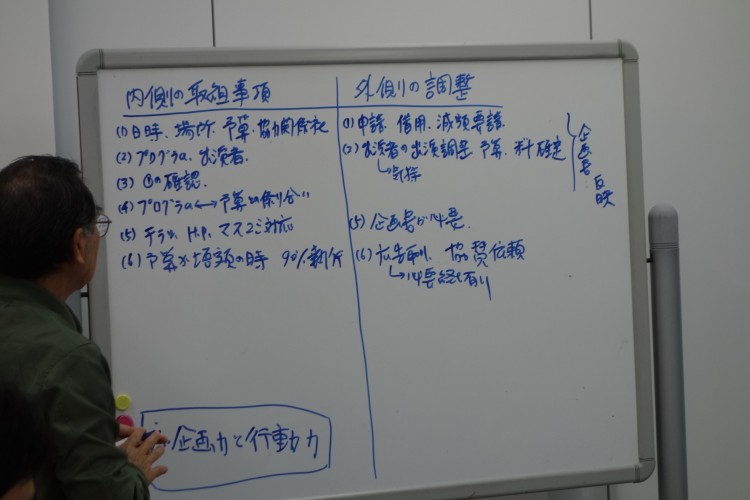 内側の取組事項
(1) 日時、場所、予算、協力関係社
(2) プログラム、出演者、
(3) ①の確認、
(4) プログラム↔予算の割り合い
(5) チラシ、H.P. マスコミ対応
(6) 予算が増額の時 90%執行
外側の調整
(1) 申請、借用、減額要請、
(2) 出演者の出演調整、予算、料確定
(5) 企画書が必要、
(6) 広告取り、協賛依頼
↳必要経も有り
企画書
反映
企画力と行動力